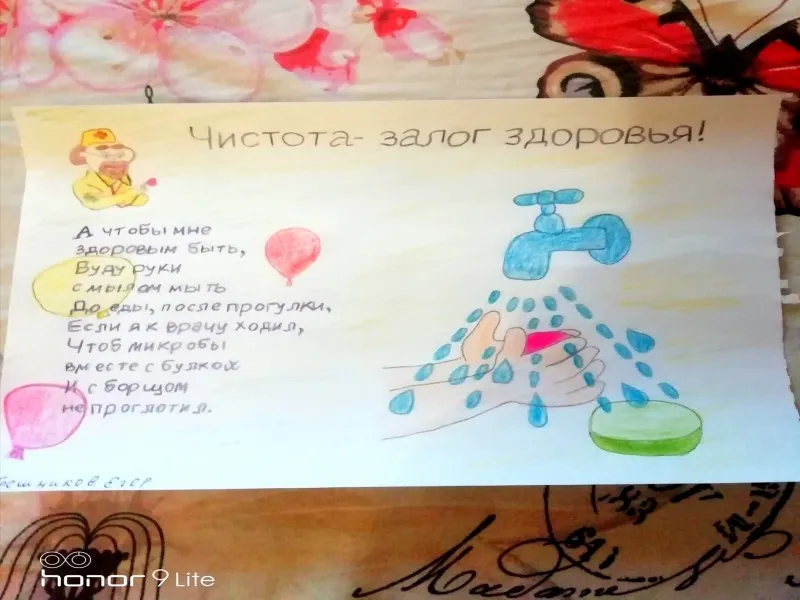 Чистота- залог здоровья!
А чтобы мне
здоровым быть,
Буду руки
с мылом мыть
До еды, после прогулки,
Если я к врачу ходил,
Чтоб микробы
вместе с булкой
И с борщом
не проглотил.
Егор
honor 9 Lite